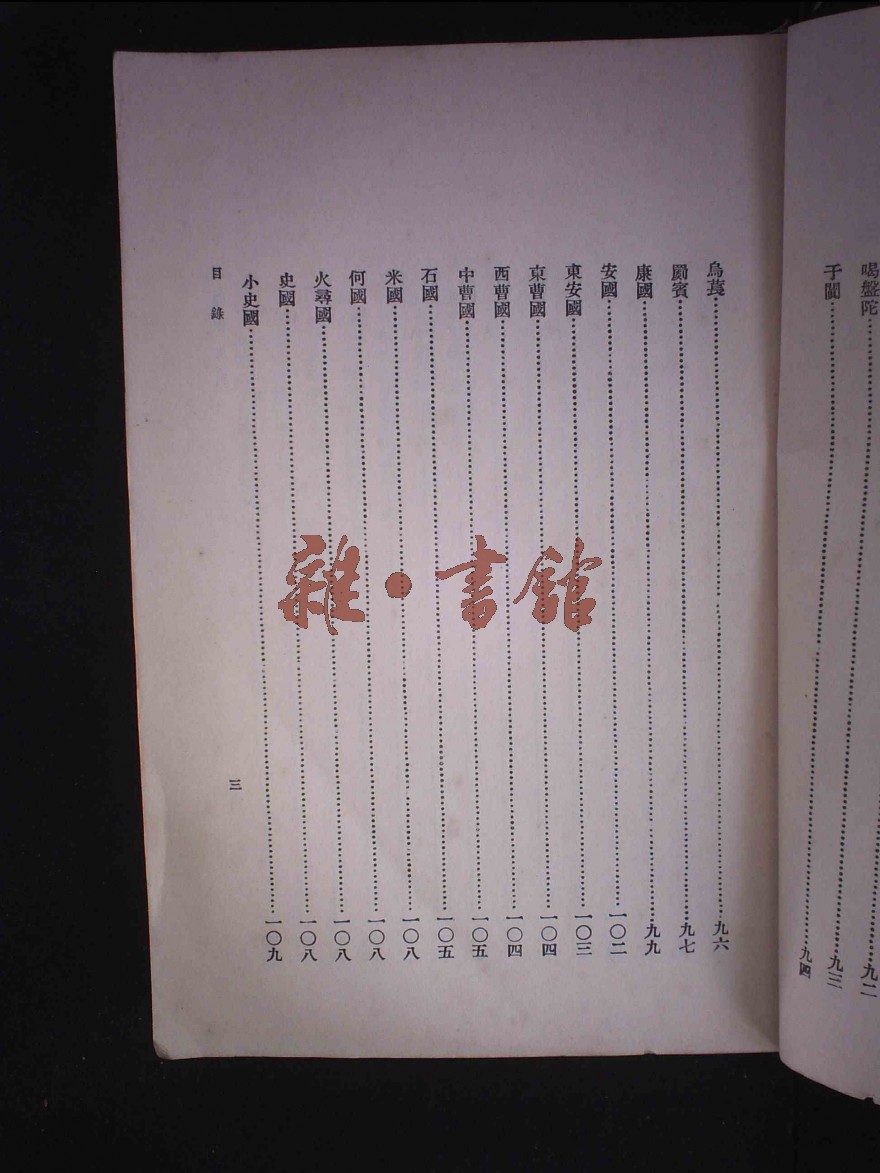 喝盤陀……九二
于闐……九三
九四
烏萇……九六
罽賓……九七
康國……九九
安國……一〇二
東安國……一〇三
東曹國……一〇四
西曹國……一〇四
中曹國……一〇五
石國……一〇五
米國……一〇八
何國……一〇八
火尋國……一〇八
史國……一〇八
小史國……一〇九
目錄
三
雜·書館